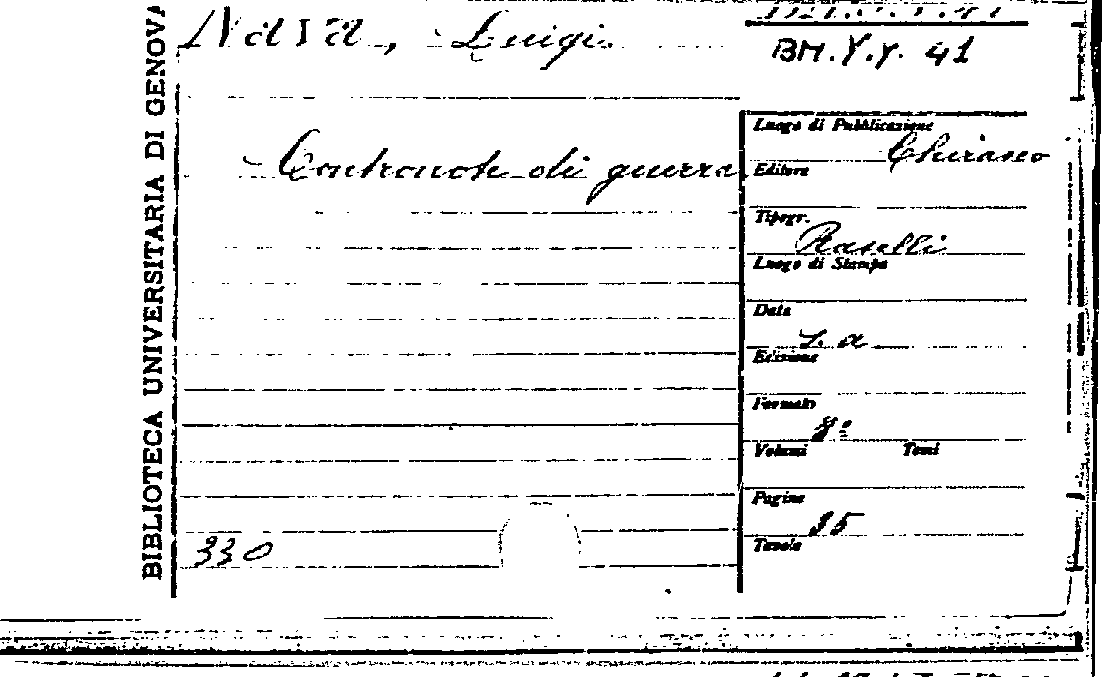 BIBLIOTECA UNIVERSITARIA DI GENOVA
Luigi
BM.Y.y. 41
Luogo di Pubblicazione
Cherasco
Contronote di guerra
Editore
Tipogr.
Raselli
Luogo di Stampa
Data
s. a
Edizione
Formato
8º
Volumi Tomi
Pagine
35
Tavole
330